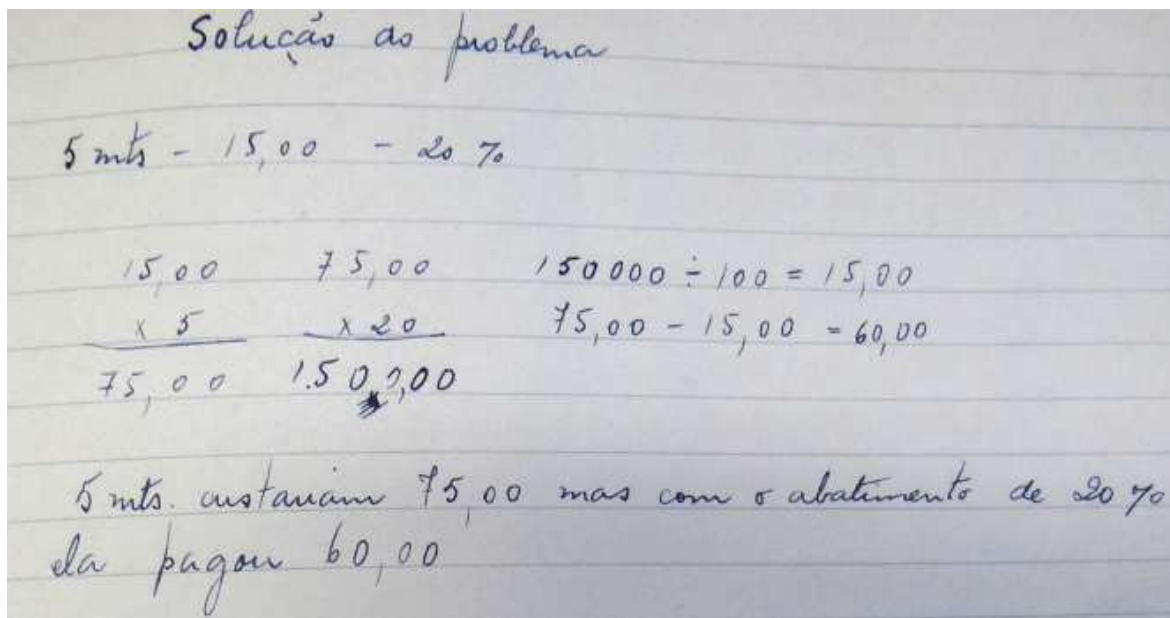 Solução do problema
5 mts - 15,00 - 20 %
15,00 75,00 150000 ÷ 100 = 15,00
x 5 x 20 75,00 - 15,00 = 60,00
75,00 1.500,00
5 mts. custariam 75,00 mas com o abatimento de 20 %
ela pagou 60,00